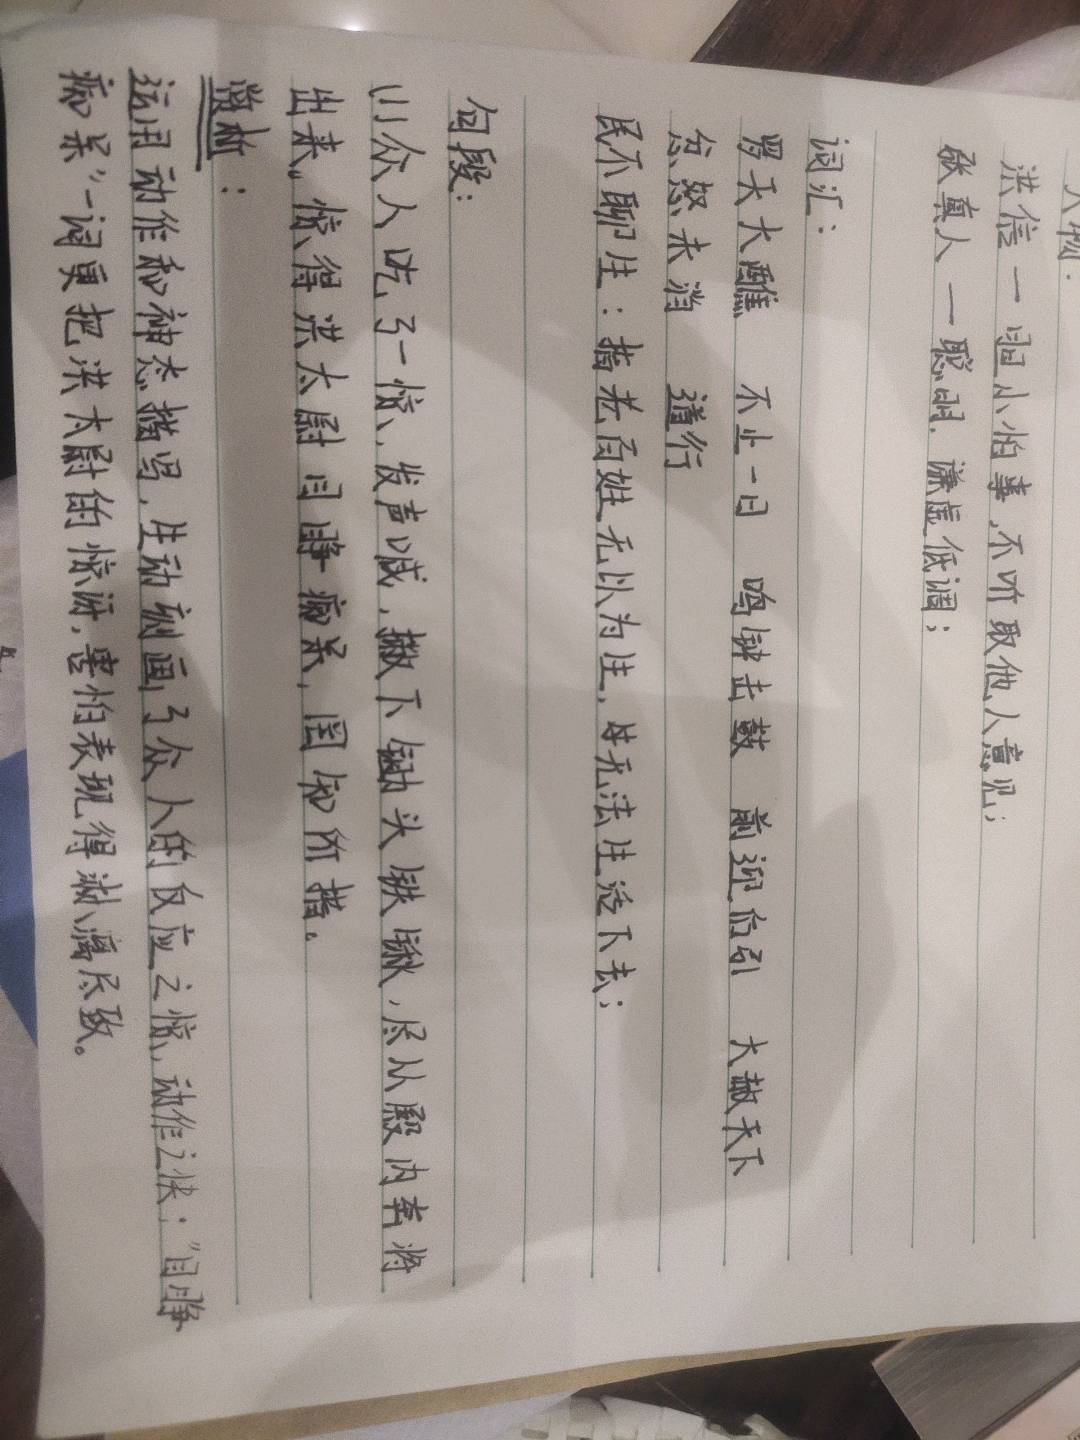 人物：
洪信—胆小怕事，不听取他人意见；
真人—聪明．谦虚低调；
词汇：
罗天大醮 不止一日 鸣钟击鼓 前迎后引 大赦天下
忿怒未消 道行
民不聊生：指老百姓无以为生，毋无法生活下去；
句段：
(1)众人吃了一惊，发声喊，撇下锄头铁锹，尽从殿内奔将
出来。惊得洪太尉目睁痴呆，罔知所措。
赏析：
运用动作和神态描写，生动刻画了众人的反应之惊，动作之快；“目睁
痴呆”一词更把洪太尉的惊讶，害怕表现得淋漓尽致。